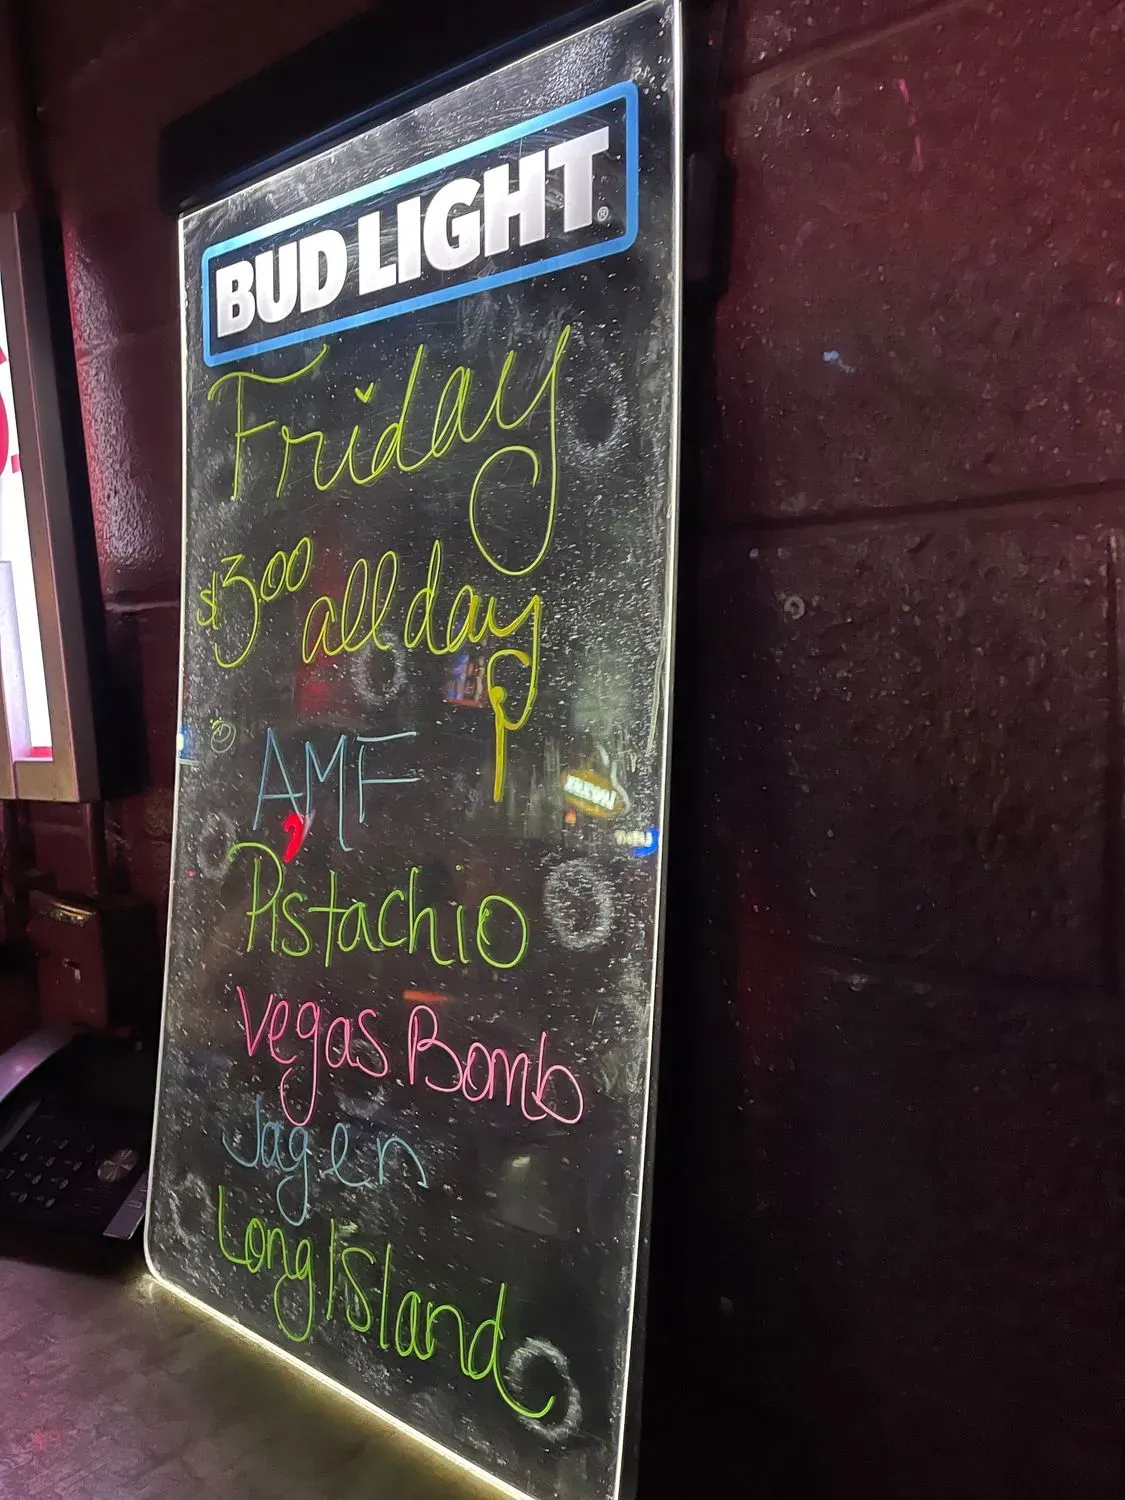 BUD LIGHT®
Friday
$3.00 all day
AMF
Pistachio
Vegas Bomb
Jager
Long Island